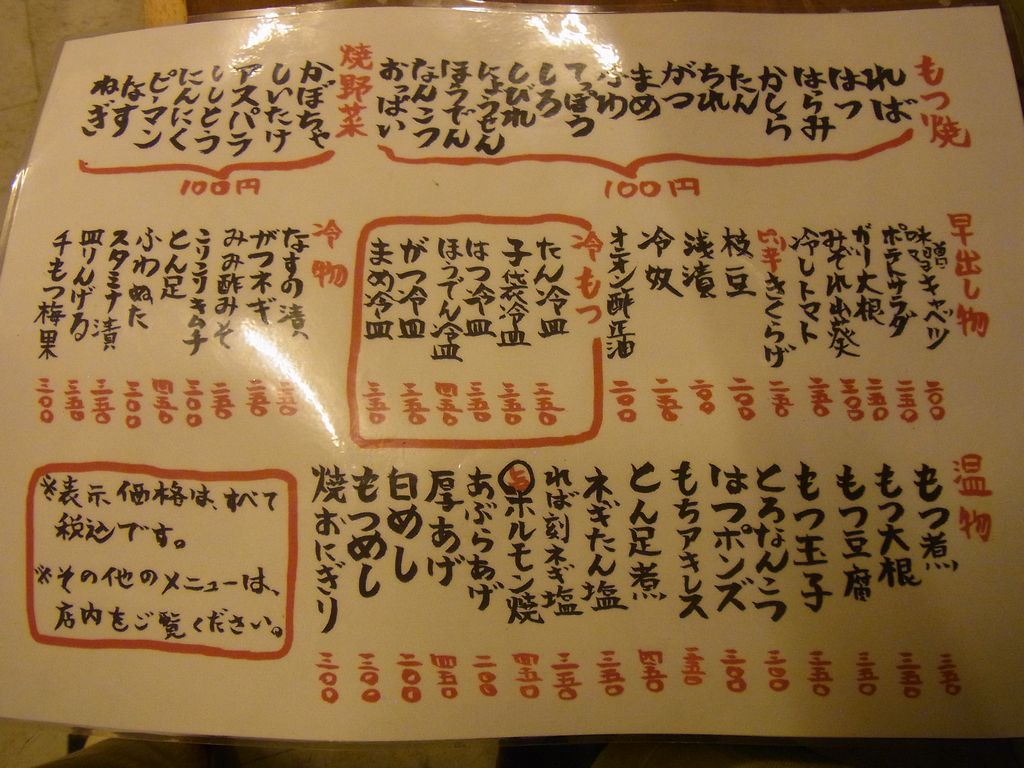 もつ焼
れば
はつ
はらみ
かしら
たん
ちれ
がつ
まめ
てっぽう
しろ
しびれ
ほうでん
なんこつ
おっぱい
100円
焼野菜
かぼちゃ
しいたけ
アスパラ
ししとう
にんにく
ピーマン
なす
ねぎ
100円
早出し物
味噌キャベツ 二〇〇
ポテトサラダ
ガリ大根
みぞれ出葵 三〇〇
冷しトマト
きくらげ
枝豆 二〇〇
浅漬 二〇〇
冷奴 二五〇
オニオン酢正油 二〇〇
冷もつ
たん冷皿 三五〇
子袋冷皿 三五〇
はつ冷皿 三五〇
ほうでん冷皿 四五〇
がつ冷皿 三五〇
まめ冷皿 三五〇
冷物
なすの漬
がつネギ
みみ酢みそ
こりこりキムチ 三〇〇
とん足 四五〇
ふわぬた
スタミナ漬
四りんげる
千もつ梅果 三〇〇
温物
もつ煮 三五〇
もつ大根 三五〇
もつ豆腐 三五〇
もつ玉子 三五〇
とろなんこつ 三〇〇
はつポンズ 三〇〇
もちアキレス
とん足煮 四五〇
ネぎたん塩 三五〇
れば刻ネギ塩 三五〇
旨ホルモン焼 四五〇
あぶらあげ 二〇〇
厚あげ 四五〇
白めし 二〇〇
もつめし 三〇〇
焼おにぎり 三〇〇
※表示価格は、すべて
税込です。
※その他のメニューは、
店内をご覧ください。